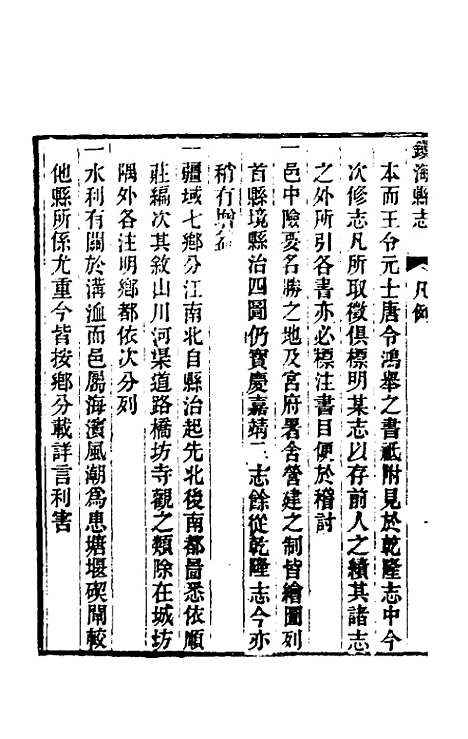 鎮海縣志　凡例
本而王令元士唐令鴻舉之書祗附見於乾隆志中今
次修志凡所取徵俱標明某志以存前人之績其諸志
之外所引各書亦必標注書目便於稽討
一邑中險要名勝之地及官府署舍營建之制皆繪圖列
首縣境縣治四圖仍寶慶嘉靖二志餘從乾隆志今亦
稍有增
一疆域七鄉分江南北自縣治起先北後南都啚悉依順
莊編次其敘山川河渠道路橋坊寺觀之類除在城坊
隅外各注明鄉都依次分列
一水利有關於溝洫而邑屬海濱風潮為患塘堰碶閘較
他縣所係尤重今皆按鄉分載詳言利害